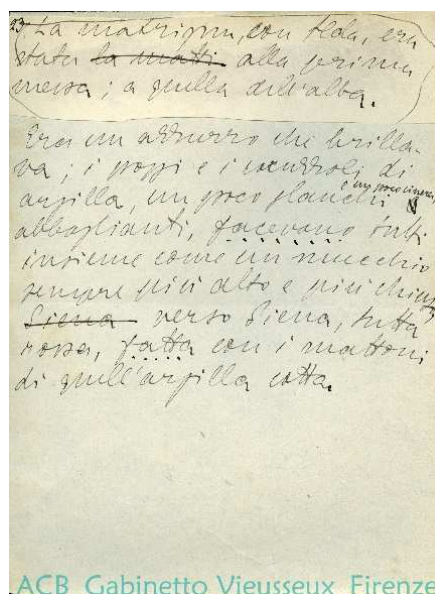 23) La matrigna, con Elda, era
stata la matti alla prima
messa; a quella dell'alba.
Era un azzurro che brilla-
va; i poggi e i cocuzzoli di
argilla, un poco glauchi
e un poco cinerei,
abbaglianti, facevano tutti
insieme come un mucchio
sempre più alto e più
Siena verso Siena, tutta
rossa, fatta con i mattoni
di quell'argilla cotta.
ACB Gabinetto Vieusseux Firenze